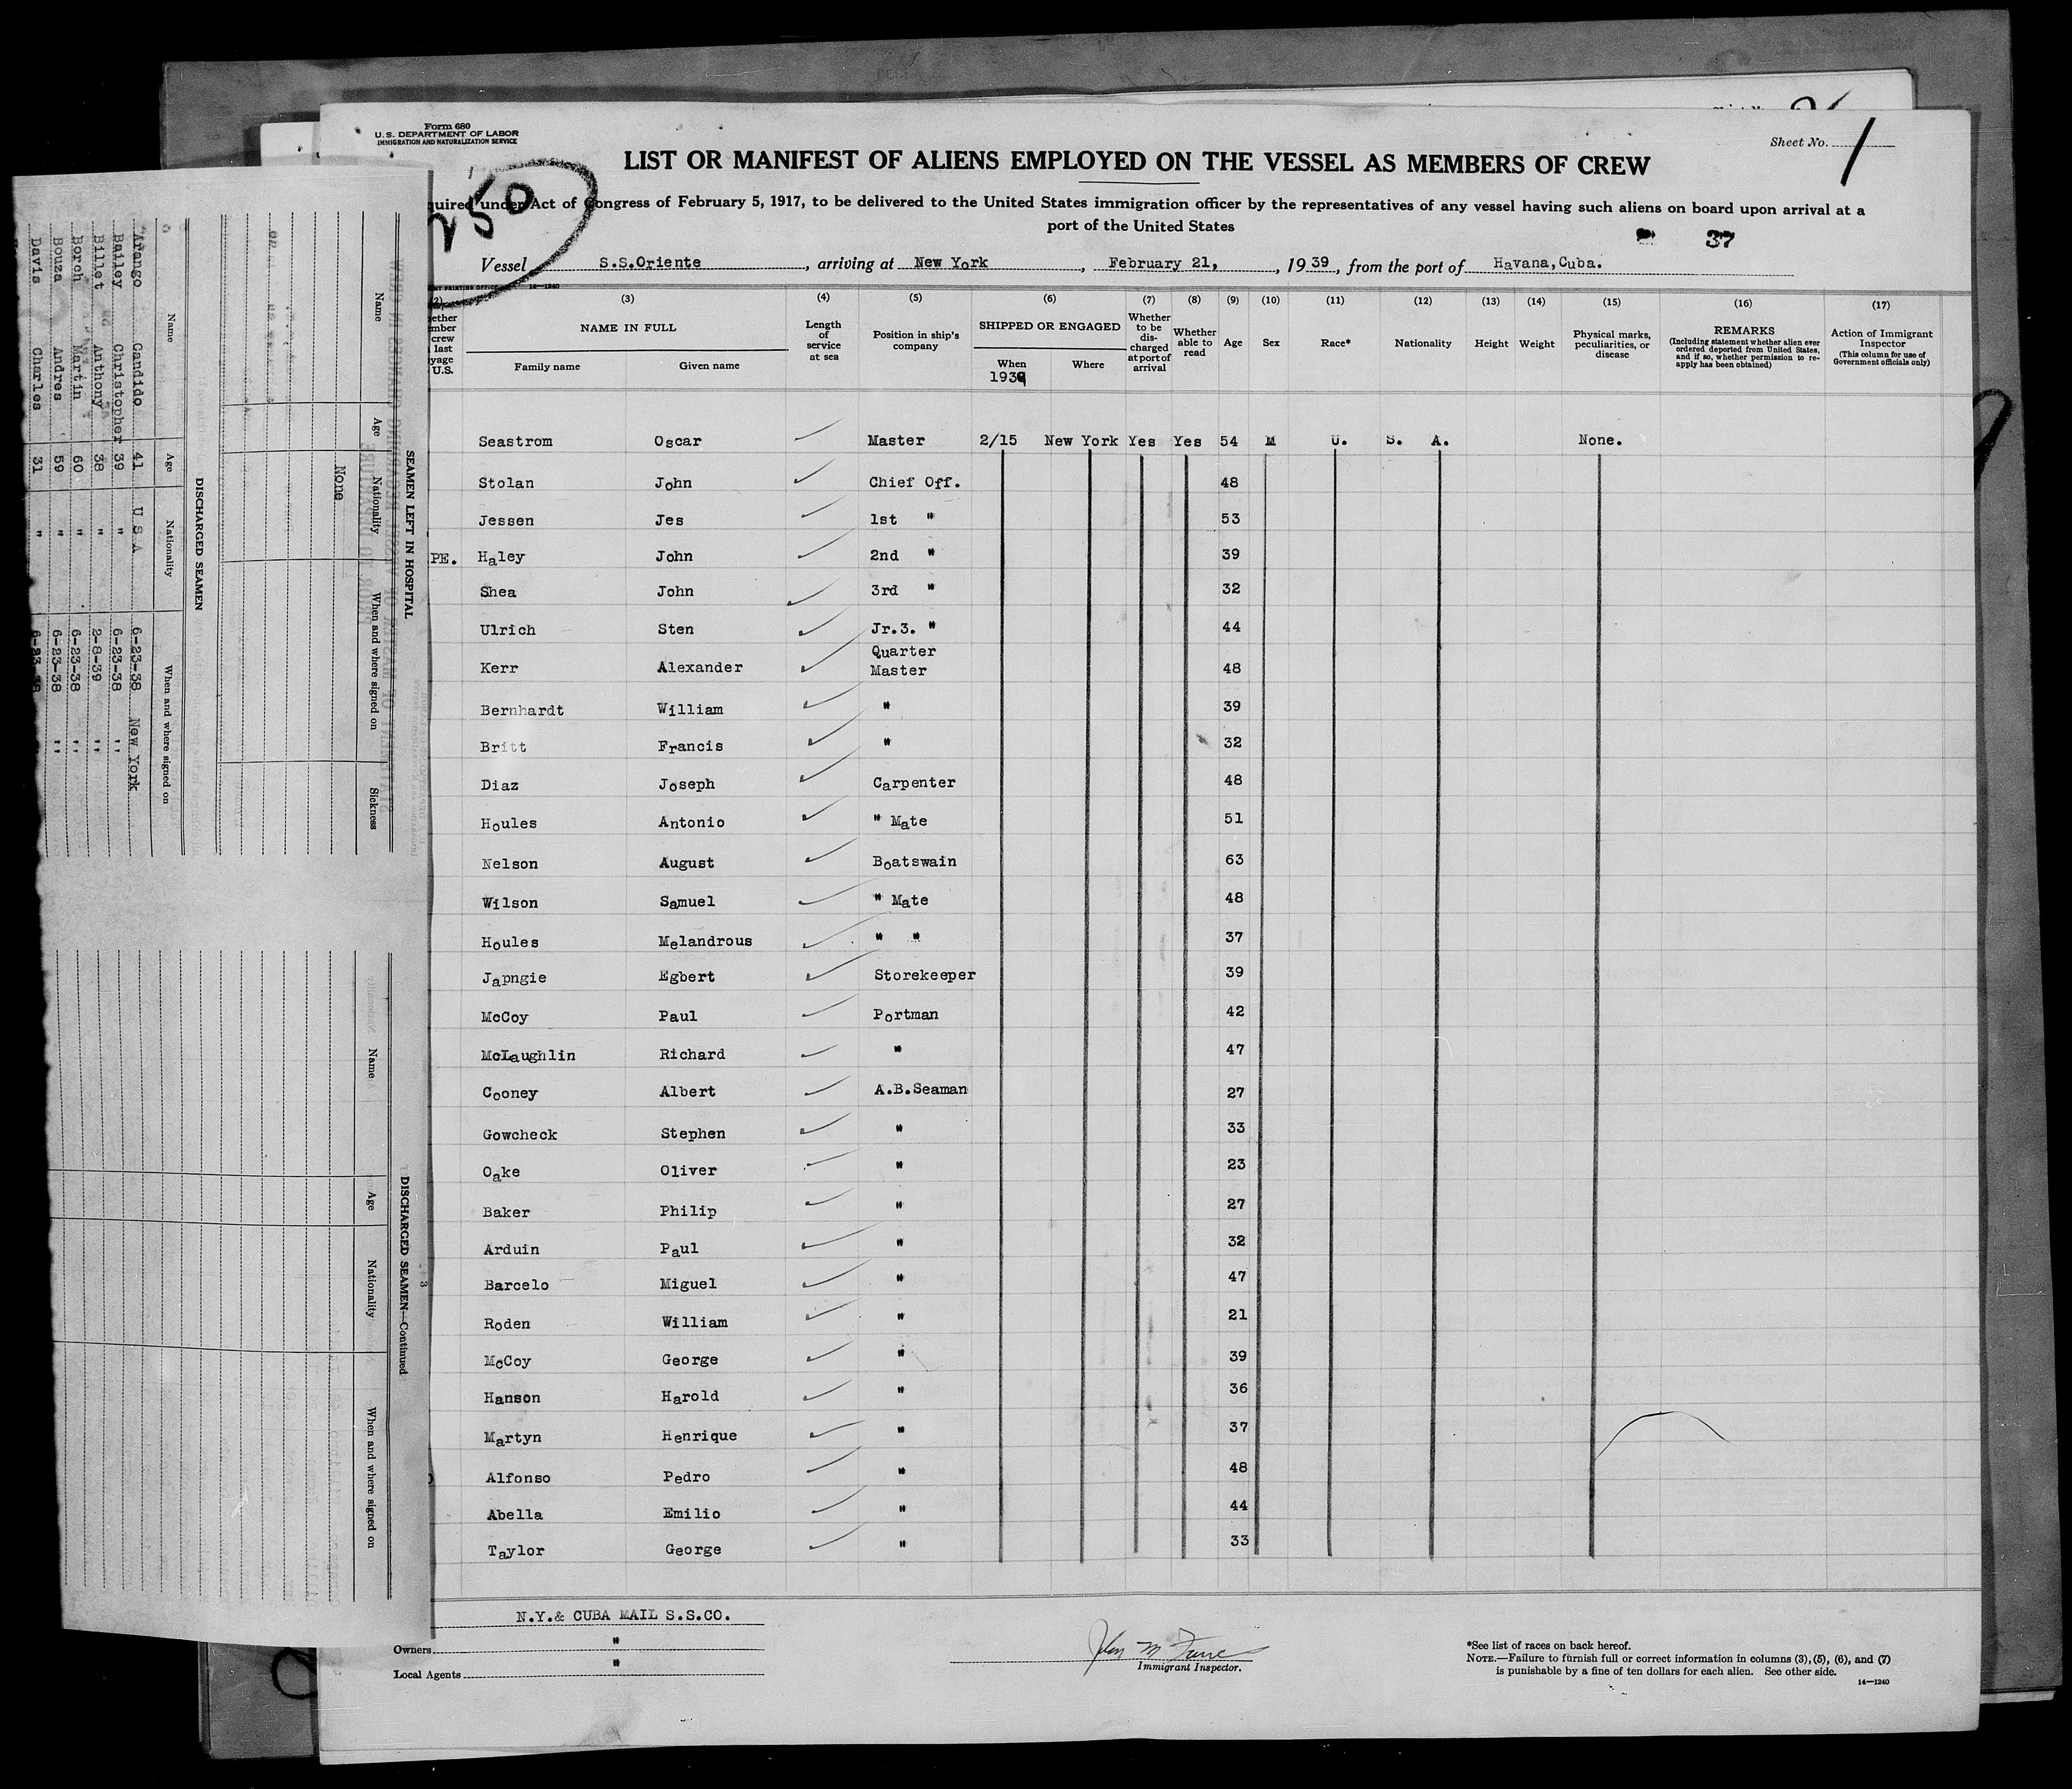 Form 680
U. S. DEPARTMENT OF LABOR
IMMIGRATION AND NATURALIZATION SERVICE
Sheet No. 1
LIST OR MANIFEST OF ALIENS EMPLOYED ON THE VESSEL AS MEMBERS OF CREW
250
quired under Act of Congress of February 5, 1917, to be delivered to the United States immigration officer by the representatives of any vessel having such aliens on board upon arrival at a
port of the United States
37
Vessel S.S.Oriente, arriving at New York, February 21, 1939, from the port of Havana,Cuba.
14—1240
(2) (3) (4) (5) (6) (7) (8) (9) (10) (11) (12) (13) (14) (15) (16) (17)
NAME IN FULL
Family name Given name
Length of service at sea
Position in ship's company
SHIPPED OR ENGAGED
When 1939 Where
Whether to be discharged at port of arrival
Whether able to read
Age Sex Race* Nationality Height Weight
Physical marks, peculiarities, or disease
REMARKS
(Including statement whether alien ever ordered deported from United States, and if so, whether permission to reapply has been obtained)
Action of Immigrant Inspector
(This column for use of Government officials only)
Seastrom Oscar Master 2/15 New York Yes Yes 54 M U. S. A. None.
Stolan John Chief Off. 48
Jessen Jes 1st " 53
PE. Haley John 2nd " 39
Shea John 3rd " 32
Ulrich Sten Jr.3. " 44
Kerr Alexander Quarter Master 48
Bernhardt William " 39
Britt Francis " 32
Diaz Joseph Carpenter 48
Houles Antonio " Mate 51
Nelson August Boatswain 63
Wilson Samuel " Mate 48
Houles Melandrous " " 37
Japngie Egbert Storekeeper 39
McCoy Paul Portman 42
McLaughlin Richard " 47
Cooney Albert A.B.Seaman 27
Gowcheck Stephen " 33
Oake Oliver " 23
Baker Philip " 27
Arduin Paul " 32
Barcelo Miguel " 47
Roden William " 21
McCoy George " 39
Hanson Harold " 36
Martyn Henrique " 37
Alfonso Pedro " 48
Abella Emilio " 44
Taylor George " 33
N.Y.& CUBA MAIL S.S.CO.
Owners "
Local Agents "
Immigrant Inspector.
*See list of races on back hereof.
NOTE.—Failure to furnish full or correct information in columns (3), (5), (6), and (7)
is punishable by a fine of ten dollars for each alien. See other side.
14—1240
SEAMEN LEFT IN HOSPITAL
Name Age Nationality When and where signed on Sickness
None
DISCHARGED SEAMEN
Name Age Nationality When and where signed on
Arango Candido 41 U S A 6-23-38 New York
Bailey Christopher 39 " 6-23-38 "
Billet Anthony 38 " 2-8-39 "
Borch Martin 60 " 6-23-38 "
Bouza Andres 59 " 6-23-38 "
Davis Charles 31 " 6-23-38
3
DISCHARGED SEAMEN—Continued
Name Age Nationality When and where signed on